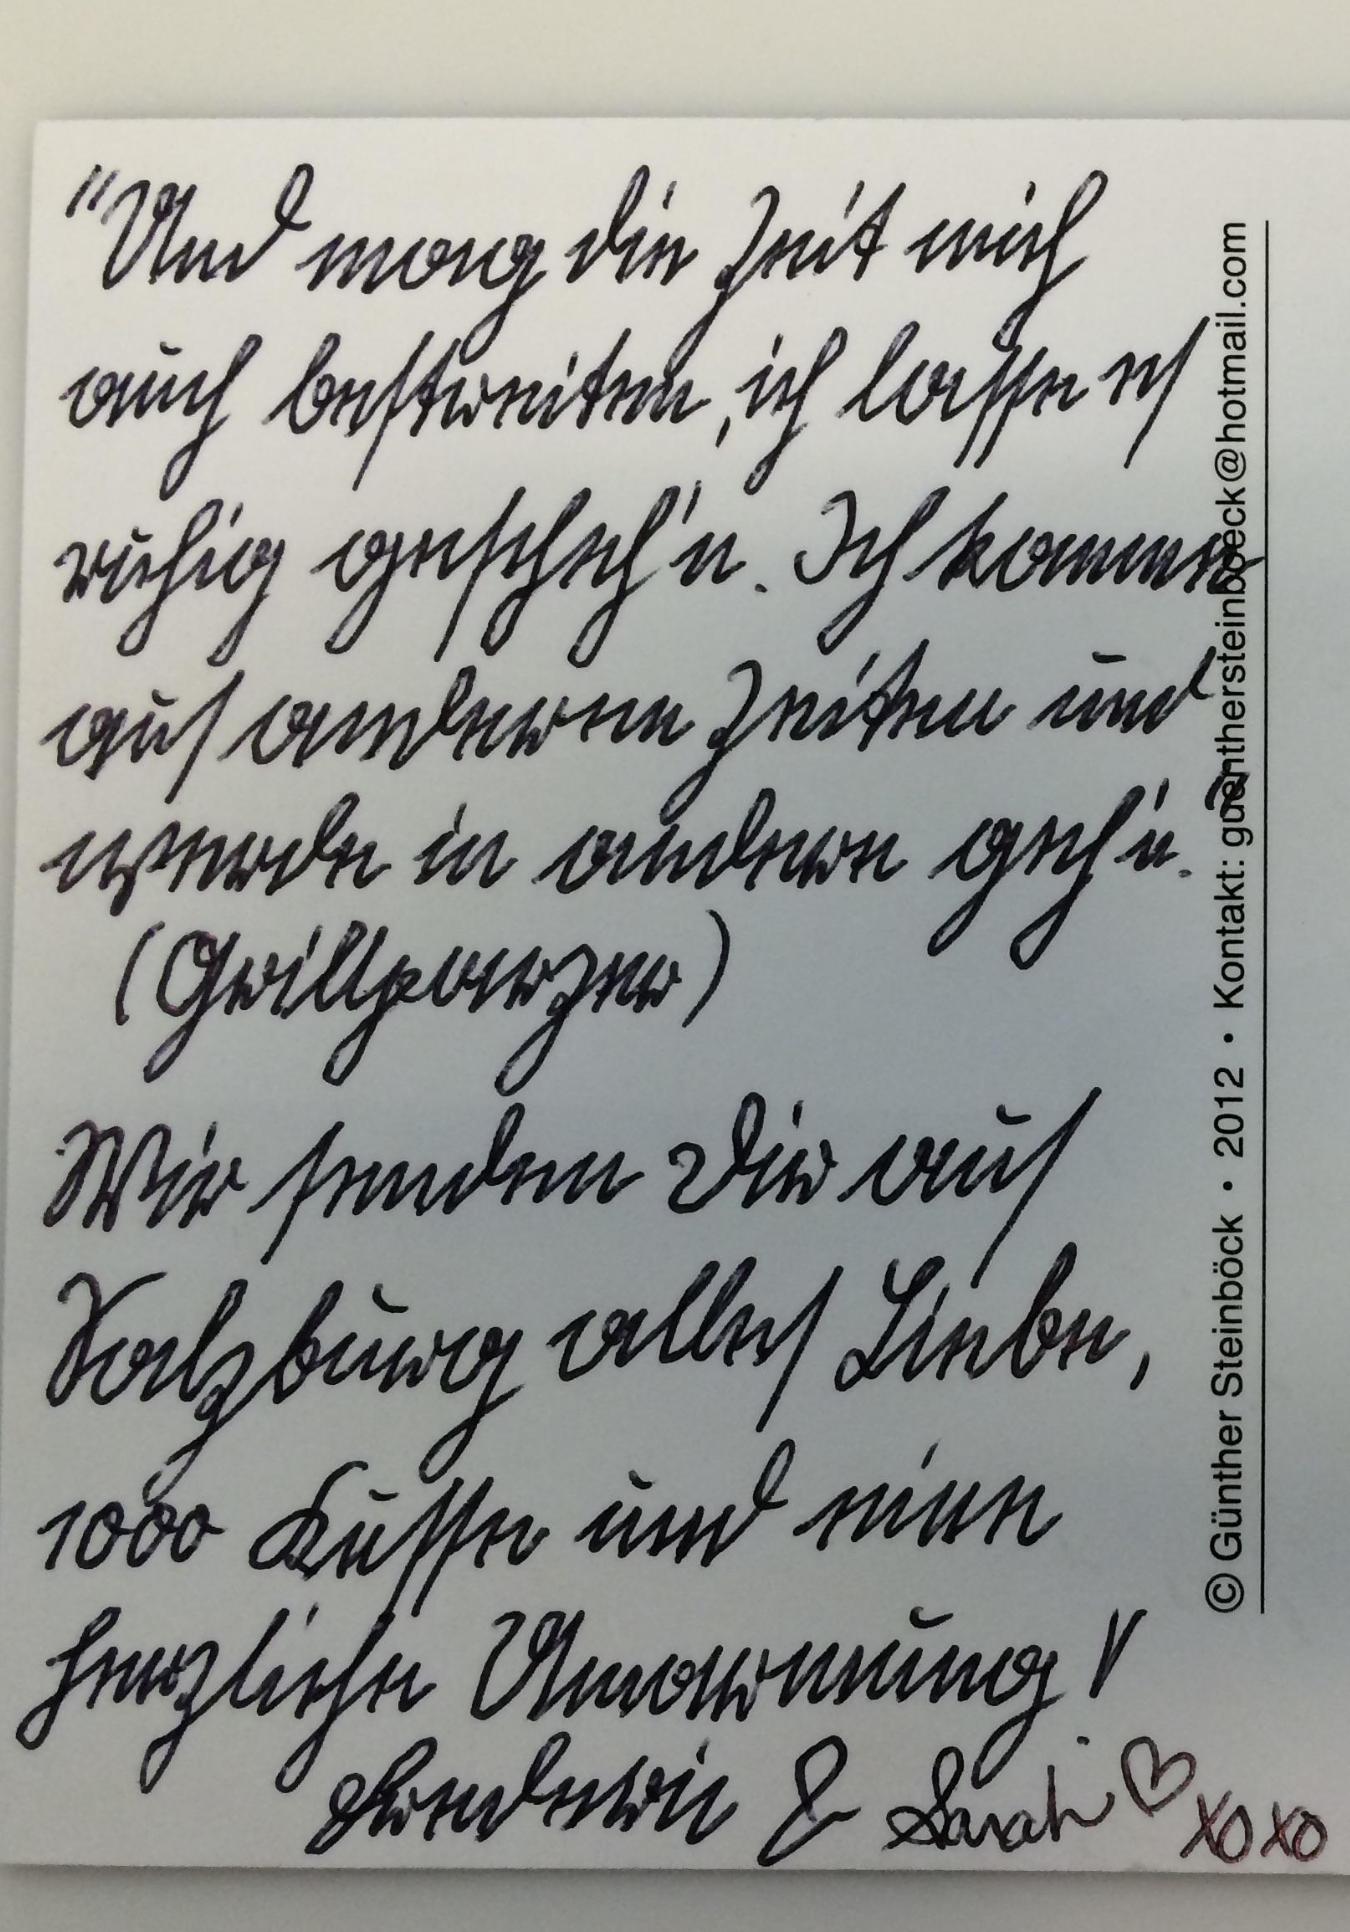 "Und mag die Zeit mich
auch bestreiten, ich lasse es
ruhig gescheh'n. Ich komme
aus anderen Zeiten und
werde in andere geh'n.
(Grillparzer)
Wir senden Dir aus
Salzburg alles Liebe,
1000 Küsse und eine
herzliche Umarmung!
& Sarah ♡ XOXO
© Günther Steinböck • 2012 • Kontakt: guenthersteinboeck@hotmail.com